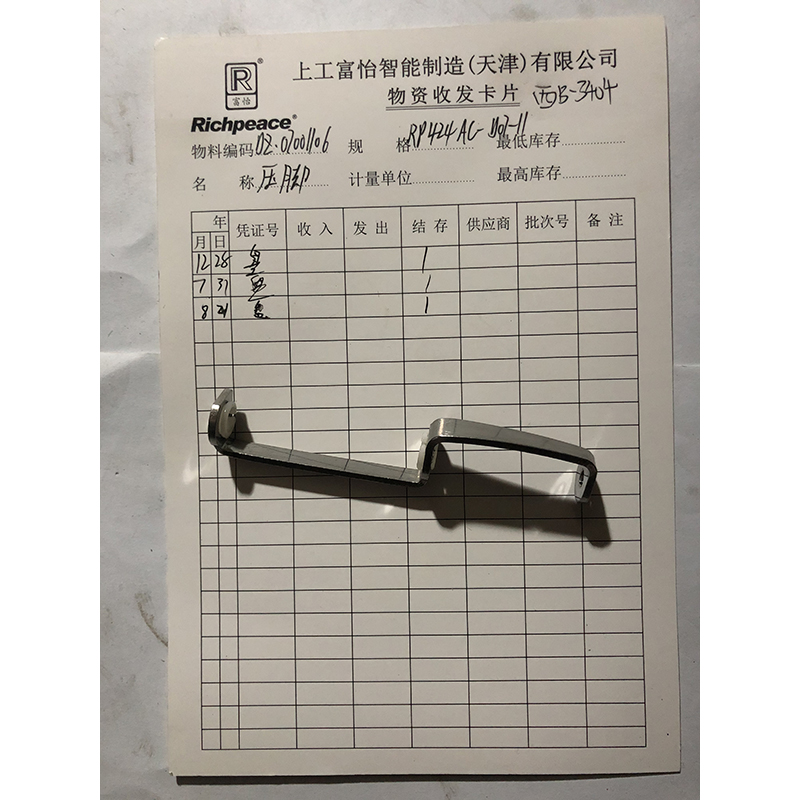 R®
富怡
Richpeace®
上工富怡智能制造(天津)有限公司
物资收发卡片 西B-3404
物料编码 02.0700106 规 格 RP424AC-1107-11 最低库存
名 称 压脚 计量单位 最高库存
年 凭证号 收入 发出 结存 供应商 批次号 备注
月 日
12 28 1
7 31 1
8 21 1